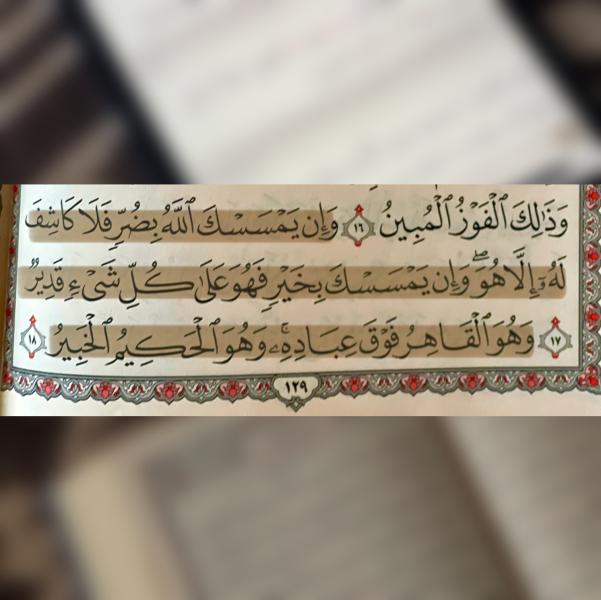 وَذَٰلِكَ ٱلْفَوْزُ ٱلْمُبِينُ ١٦ وَإِن يَمْسَسْكَ ٱللَّهُ بِضُرٍّ فَلَا كَاشِفَ
لَهُۥٓ إِلَّا هُوَۖ وَإِن يَمْسَسْكَ بِخَيْرٍ فَهُوَ عَلَىٰ كُلِّ شَىْءٍ قَدِيرٌ
١٧ وَهُوَ ٱلْقَاهِرُ فَوْقَ عِبَادِهِۦۚ وَهُوَ ٱلْحَكِيمُ ٱلْخَبِيرُ ١٨
١٢٩